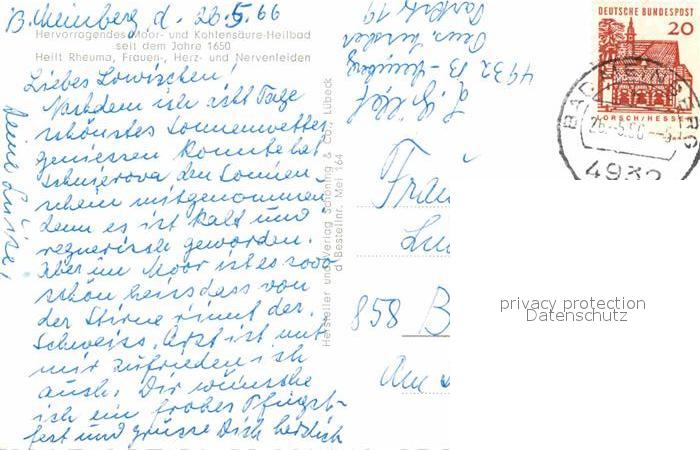 B. Meinberg d. 26.5.66
Hervorragendes Moor- und Kohlensäure-Heilbad
seit dem Jahre 1650
Heilt Rheuma, Frauen-, Herz- und Nervenleiden
Liebes
Nachdem ich acht Tage
schönstes Sonnenwetter
geniessen konnte hat
den Sonnen-
schein mitgenommen
denn es ist kalt und
regnerisch geworden.
Aber im Moor ist es sooo
schön heiss dass von
der Stirne rinnt der
Schweiss. Arzt ist mit
mir zufrieden ich
auch. Dir wünsche
ich ein frohes Pfingst-
fest und grüsse Dich herzlich
Deine
Hersteller und Verlag Schöning & Co., Lübeck
Bestellnr. Mei 164
4932 B - Meinberg
Parkstr 19
Frau
858 B
Am
DEUTSCHE BUNDESPOST
20
LORSCH/HESSEN
BAD MEINBERG
26.-5.66-
4932
privacy protection
Datenschutz